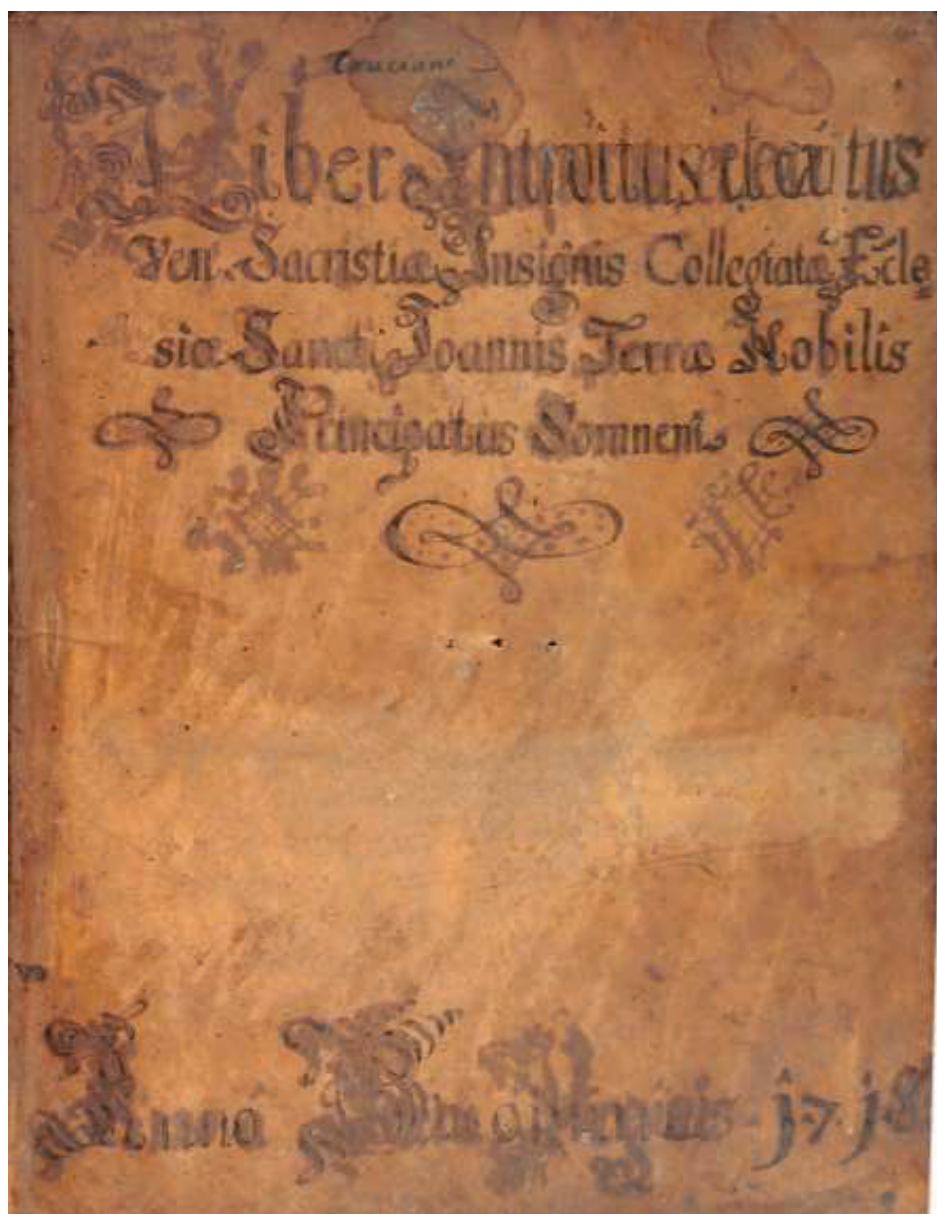 Liber Introitus et exitus
Ven. Sacristiæ Insignis Collegiatæ Eccle
siæ Sancti Joannis Terræ Nobilis
Principatus Somneni
Anno Virginis j.7.j.8